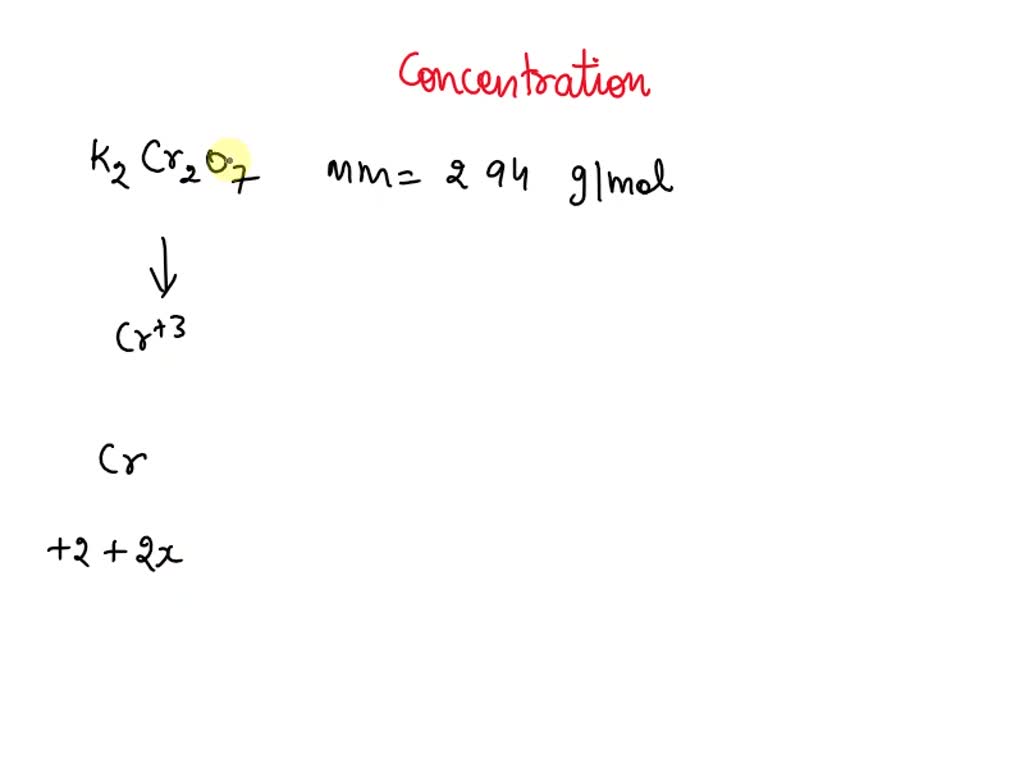 Concentration
K₂Cr₂O₇ MM = 294 g/mol
↓
Cr⁺³
Cr
+2 + 2x